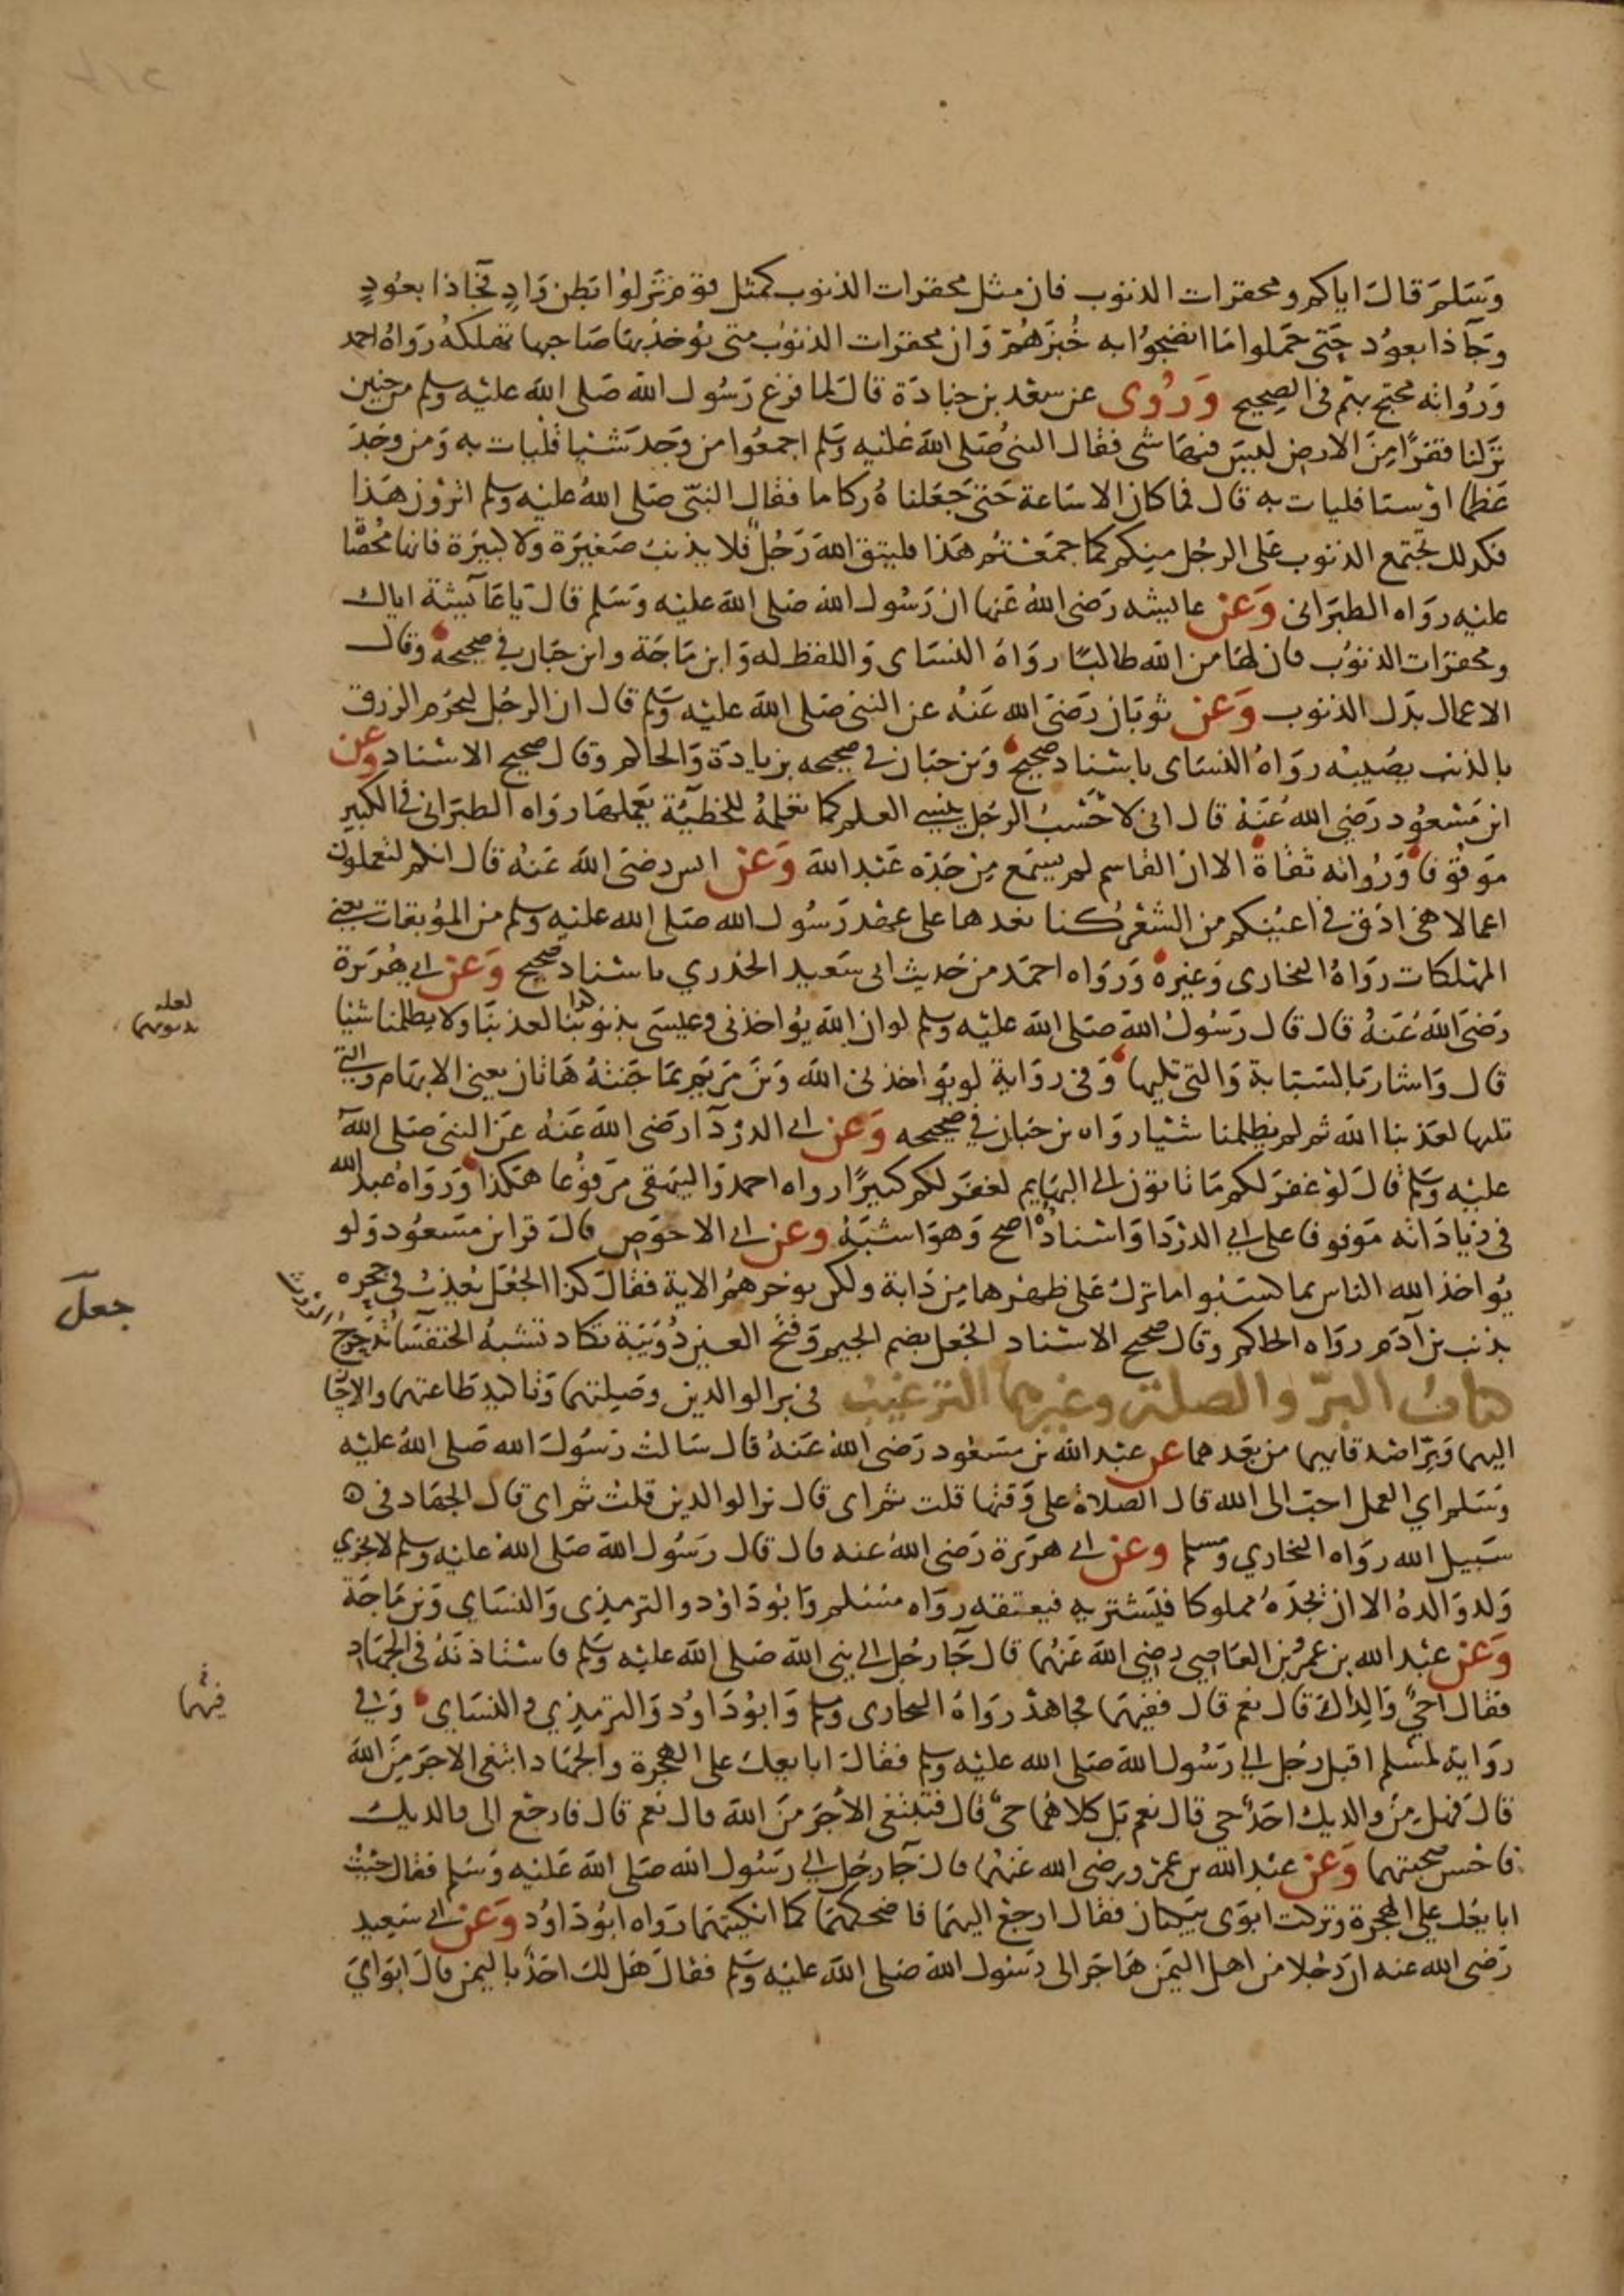 وسلم قال اياكم ومحقرات الذنوب فان مثل محقرات الذنوب كمثل قوم نزلوا بطن واد فجاذا بعود
وجاذا بعود حتى حملوا ما انضجوا به خبزهم وان محقرات الذنوب متى يؤخذ بها صاحبها تهلكه رواه احمد
ورواته محتج بهم في الصحيح وروى عن سعد بن جنادة قال لما فرغ رسول الله صلى الله عليه وسلم من حنين
نزلنا قفرا من الارض ليس فيها شى فقال النبي صلى الله عليه وسلم اجمعوا من وجد شيا فليات به ومن وجد
عظما او سنا فليات به قال فما كان الا ساعة حتى جعلناه ركاما فقال النبي صلى الله عليه وسلم اترون هذا
فكذلك تجتمع الذنوب على الرجل منكم كما جمعتم هذا فليتق الله رجل فلا يذنب صغيرة ولا كبيرة فانها محصا
عليه رواه الطبرانى وعن عايشه رضى الله عنها ان رسول الله صلى الله عليه وسلم قال يا عآيشة اياك
ومحقرات الذنوب فان لها من الله طالبا رواه النساى واللفظ له وابن ماجة وابن حبان في صحيحه وقال
الاعمال بدل الذنوب وعن ثوبان رضى الله عنه عن النبي صلى الله عليه وسلم قال ان الرجل ليحرم الرزق
بالذنب يصيبه رواه النساى باسناد صحيح وبن حبان في صحيحه بزيادة والحاكم وقال صحيح الاسناد وعن
ابن مسعود رضي الله عنه قال انى لاحسب الرجل ينسى العلم كما تعلمه للخطيئة يعملها رواه الطبرانى فى الكبير
موقوفا ورواته ثقاة الا ان القاسم لم يسمع من جده عبد الله وعن انس رضى الله عنه قال انكم لتعملون
اعمالا هي ادق في اعينكم من الشعر كنا نعدها على عهد رسول الله صلى الله عليه وسلم من الموبقات يعني
المهلكات رواه البخارى وغيره ورواه احمد من حديث ابى سعيد الخدري باسناد صحيح وعن ابي هريرة
رضى الله عنه قال قال رسول الله صلى الله عليه وسلم لو ان الله يؤاخذنى وعيسى بذنوبنا لعذبنا ولا يظلمنا شيا
قال واشار بالسبابة والتى تليها وفى رواية لو يؤاخذنى الله وبن مريم بما جنته هاتان يعنى الابهام والتي
تليها لعذبنا الله ثم لم يظلمنا شيا رواه بن حبان في صحيحه وعن ابي الدردآ رضى الله عنه عن النبي صلى الله
عليه وسلم قال لو غفر لكم ما تاتون الى البهايم لغفر لكم كثيرا رواه احمد والبيهقى مرفوعا هكذا ورواه عبد الله
فى زياداته موقوفا على ابي الدردا واسناده اصح وهو اشبه وعن ابي الاحوص قال قرا ابن مسعود ولو
يؤاخذ الله الناس بما كسبوا ما ترك على ظهرها من دابة ولكن يوخرهم الاية فقال كذا الجعل يعذب في جحره
بذنب بن آدم رواه الحاكم وقال صحيح الاسناد الجعل بضم الجيم وفتح العين دويبة تكاد تشبه الخنفسا تدحرج
كتاب البر والصلة وغيرهما الترغيب فى بر الوالدين وصلتهما وتاكيد طاعتهما والاحسا
اليهما وبر اصدقايهما من بعدهما عن عبد الله بن مسعود رضى الله عنه قال سالت رسول الله صلى الله عليه
وسلم اي العمل احب الى الله قال الصلاة على وقتها قلت ثم اى قال بر الوالدين قلت ثم اى قال الجهاد فى
سبيل الله رواه البخاري ومسلم وعن ابي هريرة رضى الله عنه قال قال رسول الله صلى الله عليه وسلم لا يجزي
ولد والده الا ان يجده مملوكا فيشتريه فيعتقه رواه مسلم وابو داود والترمذى والنساي وبن ماجة
وعن عبد الله بن عمرو بن العاصي رضي الله عنهما قال جآ رجل الى نبى الله صلى الله عليه وسلم فاستاذنه فى الجهاد
فقال احي والداك قال نعم قال ففيهما فجاهد رواه البخارى وسلم وابو داود والترمذي والنساي وفي
رواية لمسلم اقبل رجل الى رسول الله صلى الله عليه وسلم فقال ابايعك على الهجرة والجهاد ابتغى الاجر من الله
قال فهل من والديك احد حي قال نعم بل كلاهما حي قال فتبتغى الأجر من الله قال نعم قال فارجع الى والديك
فاحسن صحبتهما وعن عبد الله بن عمرو رضى الله عنهما قال جآ رجل الى رسول الله صلى الله عليه وسلم فقال جيت
ابايعك على الهجرة وتركت ابوى يبكيان فقال ارجع اليهما فاضحكهما كما ابكيتهما رواه ابو داود وعن ابي سعيد
رضى الله عنه ان رجلا من اهل اليمن هاجر الى رسول الله صلى الله عليه وسلم فقال هل لك احد باليمن قال ابواي
لعله
بذنوبهما
جعل
فيهما